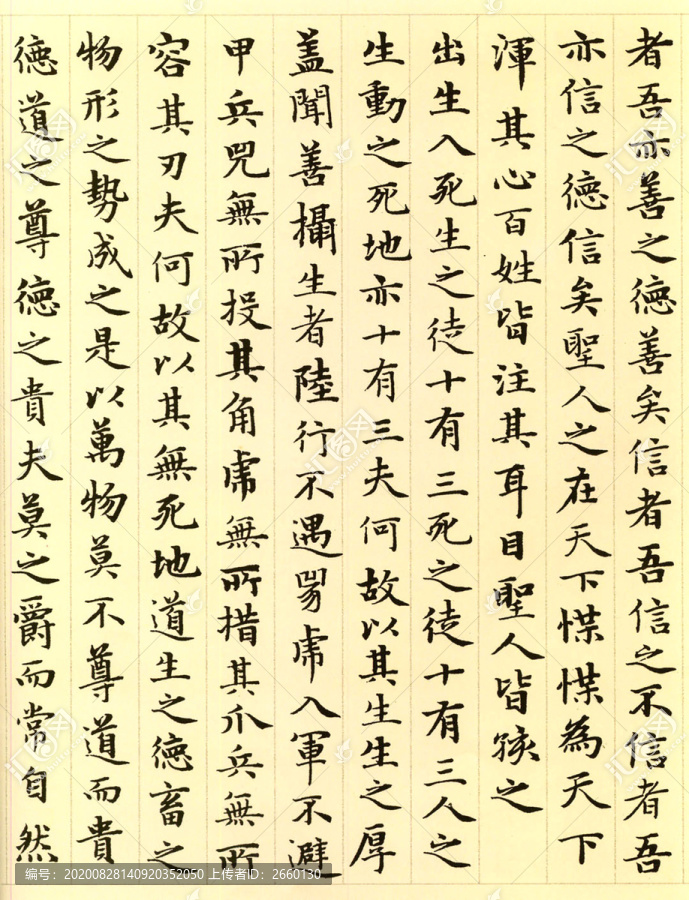 者吾亦善之德善矣信者吾信之不信者吾
亦信之德信矣聖人之在天下惵惵為天下
渾其心百姓皆注其耳目聖人皆孩之
出生入死生之徒十有三死之徒十有三人之
生動之死地亦十有三夫何故以其生生之厚
盖聞善攝生者陸行不遇兕虎入軍不避
甲兵兕無所投其角虎無所措其爪兵無所
容其刃夫何故以其無死地道生之德畜之
物形之勢成之是以萬物莫不尊道而貴
德道之尊德之貴夫莫之爵而常自然
编号：20200828140920352050 上传者ID：2660130